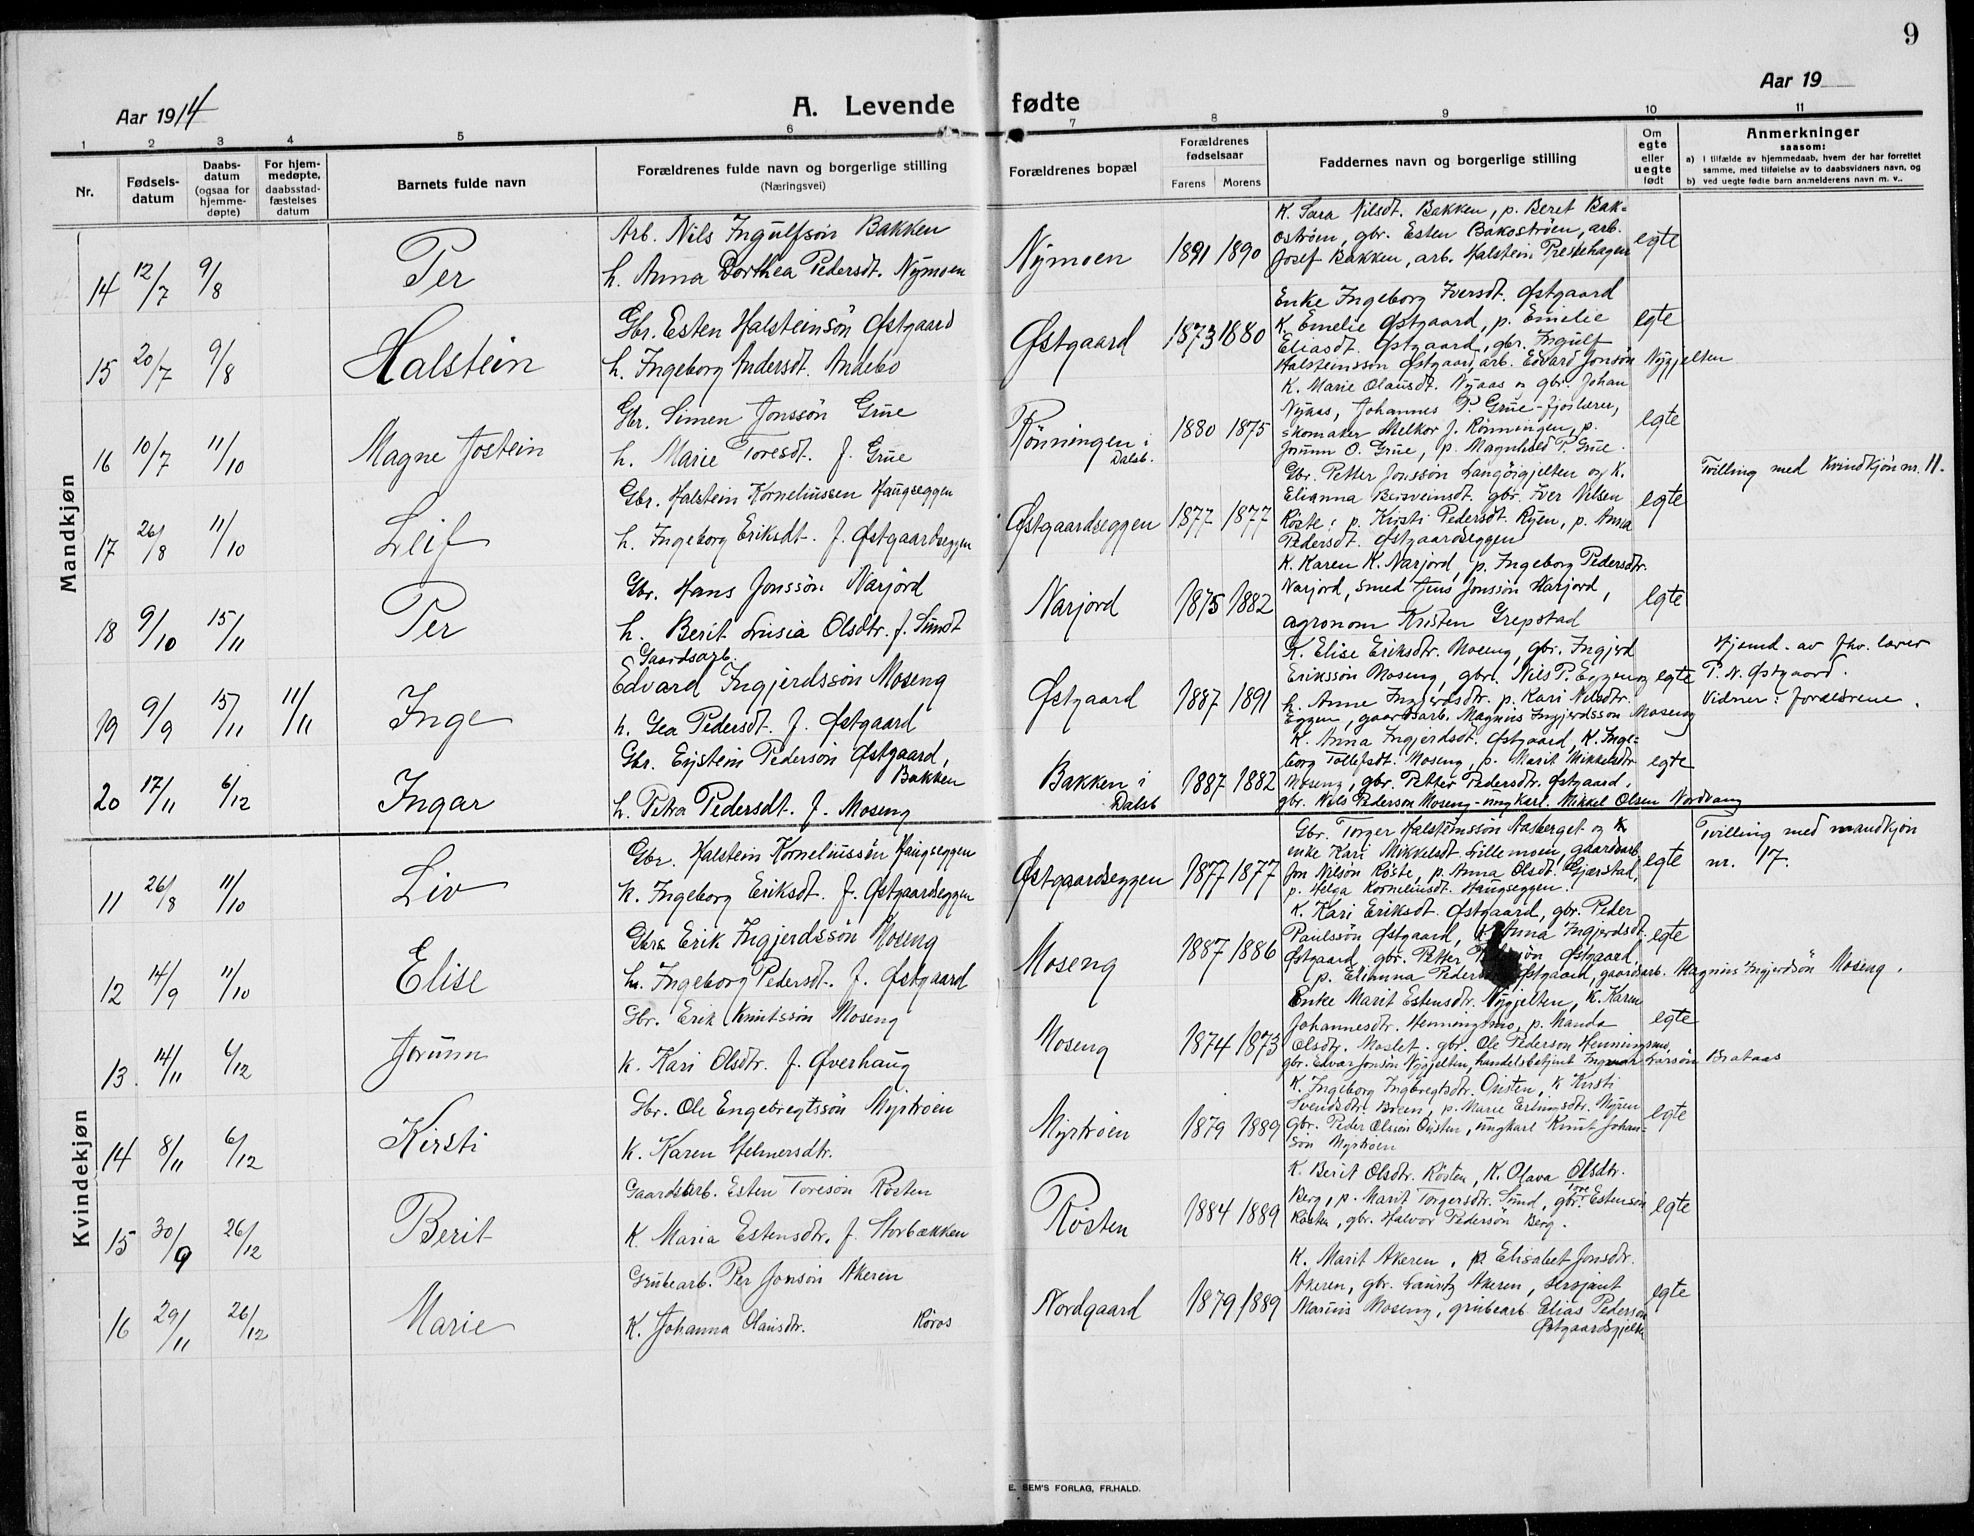 9
Aar 1914
A. Levende fødte
Aar 19
1 2 3 4 5 6 7 8 9 10 11
Nr.
Fødsels-
datum
Daabs-
datum
(ogsaa for
hjemme-
døpte)
For hjem-
medøpte,
daabsstad-
fæstelses
datum
Barnets fulde navn
Forældrenes fulde navn og borgerlige stilling
(Næringsvei)
Forældrenes bopæl
Forældrenes
fødselsaar
Farens Morens
Faddernes navn og borgerlige stilling
Om
egte
eller
uegte
født
Anmerkninger
saasom:
a) I tilfælde av hjemmedaab, hvem der har forrettet
samme, med tilføielse av to daabsvidners navn, og
b) ved uegte fødte barn anmelderens navn m. v..
Mandkjøn
14 12/7 9/8 Per
Arb. Nils Ingulfsøn Bakken
h. Anna Dorthea Pedersdt. Nymoen
Nymoen 1891 1890
K. Sara Nilsdt. Bakken, p. Beret Bak-
ostrøen, gbr. Esten Bakostrøen, arb.
Josef Bakken, arb. Halstein Prestehagen
egte
15 20/7 9/8 Halstein
Gbr. Esten Halsteinsøn Østgaard
h. Ingeborg Andersdt. Andebo
Østgaard 1873 1880
Enke Ingeborg Iversdt. Østgaard
K. Emelie Østgaard, p. Emelie
Eliasdt. Østgaard, gbr. Ingulf
Halsteinssøn Østgaard, arb. Edvard Jonsøn Nygjelten
egte
16 10/7 11/10 Magne Jostein
Gbr. Simen Jonssøn Grue
h. Marie Toresdt. f. Grue
Rønningen i
Dalsb.
1880 1875
K. Marie Olausdt. Nyaas og gbr. Johan
Nyaas, Johannes P. Grue - fjoslærer,
skomaker Melkor J. Rønningen, p.
Jorunn O. Grue, p. Magnhild P. Grue.
egte
17 26/8 11/10 Leif
Gbr. Halstein Korneliussen Haugseggen
h. Ingeborg Eriksdt. f. Østgaardseggen
Østgaardseggen 1877 1877
Gbr. Petter Jonssøn Langøigjelten og K.
Elianna Bersveinsdt. gbr. Iver Nilsen
Röste, p. Kirsti Pedersdt. Ryen, p. Anna
Pedersdt. Østgaardseggen
egte
Tvilling med Kvindkjøn nr. 11.
18 9/10 15/11 Per
Gbr. Hans Jonssøn Narjord
h. Berit Lusia Olsdtr. f. Sundt
Narjord 1875 1882
K. Karen K. Narjord, p. Ingeborg Pedersdtr.
Narjord, smed Jens Jonssøn Narjord,
agronom Kristen Grepstad
egte
19 9/9 15/11 11/11 Inge
Gaardsarb.
Edvard Ingjerdssøn Moseng
h. Gea Pedersdt. f. Østgaard
Østgaard 1887 1891
K. Elise Eriksdtr. Moseng, gbr. Ingjerd
Erikssøn Moseng, gbr. Nils P. Eggen og
h. Anne Ingjerdsdtr. p. Kari Nilsdtr.
Eggen, gaardsarb. Magnus Ingjerdssøn Moseng
egte
Hjemd. av fhv. lærer
P. N. Østgaard.
Vidner: forældrene.
20 17/11 6/12 Ingar
Gbr. Eystein Pedersøn Østgaard,
Bakken
h. Petra Pedersdt. f. Moseng
Bakken i
Dalsb
1887 1882
K. Anna Ingjerdsdt. Østgaard, K. Inge-
borg Tollefsdt. Moseng, p. Marit Mikkelsdtr
Moseng, gbr. Petter Pedersdtr. Østgaard,
gbr. Nils Pedersøn Moseng - ungkarl. Mikkel Olsen Nordvang
egte
Kvindekjøn
11 26/8 11/10 Liv
Gbr. Halstein Korneliussøn Haugseggen
h. Ingeborg Eriksdt. f. Østgaardseggen
Østgaardseggen 1877 1877
Gbr. Torger Halsteinssøn Aasberget og K
enke Kari Mikkelsdt. Lillemoen, gaardsarb.
Jon Nilsøn Röste, p. Anna Olsdt. Gjærstad,
p. Helga Korneliusdt. Haugseggen.
egte
Tvilling med mandkjøn
nr. 17.
12 14/9 11/10 Elise
Gbr. Erik Ingjerdssøn Moseng
h. Ingeborg Pedersdt. f. Østgaard
Moseng 1887 1886
K. Kari Eriksdt. Østgaard, gbr. Peder
Paulssøn Østgaard, Anna Ingjerdsdt.
Østgaard, gbr. Petter Østgaard,
p. Elianna Østgaard, gaardsarb. Magnus Ingjerdsøn Moseng.
egte
13 14/11 6/12 Jorunn
Gbr. Erik Knutssøn Moseng
K. Kari Olsdtr. f. Øverhaug
Moseng 1874 1873
Enke Marit Estensdtr. Nygjelten, K. Karen
Johannesdtr. Henningsmo, p. Manda
Olsdtr. Moslet. gbr. Ole Pedersøn Henningsmo,
gbr. Edvar Jonsøn Nygjelten, handelsbetjent Ingvar Larsøn Brataas
egte
14 8/11 6/12 Kirsti
Gbr. Ole Engebregtssøn Myrtrøen
K. Karen Helmersdtr.
Myrtrøen 1879 1889
K. Ingeborg Ingbregtsdtr. Ousten, K Kirsti
Svendsdtr. Brœn, p. Marie Erlingsdtr. Myren
gbr. Peder Olssøn Ousten, ungkarl Knut Johan-
søn Myrtrøen
egte
15 30/9 26/12 Berit
Gaardsarb. Esten Toresøn Røsten
K. Maria Estensdtr. f. Storbækken
Røsten 1884 1889
K. Berit Olsdtr. Røsten, K. Olava Olsdtr.
Berg, p. Marit Torgersdtr. Sund, gbr. Tore Estensøn
Røsten, gbr. Halvor Pedersøn Berg.
egte
16 29/11 26/12 Marie
Grubearb. Per Jonsøn Akeren
K. Johanna Olausdtr. Røros
Nordgaard 1879 1889
K. Marit Akeren, p. Elisabet Jonsdtr.
Akeren, gbr. Lauritz Akeren, sersjant
Marius Moseng, grubearb. Elias Pedersøn
Østgaardsgjelte
egte
E. SEM'S FORLAG, FR.HALD.